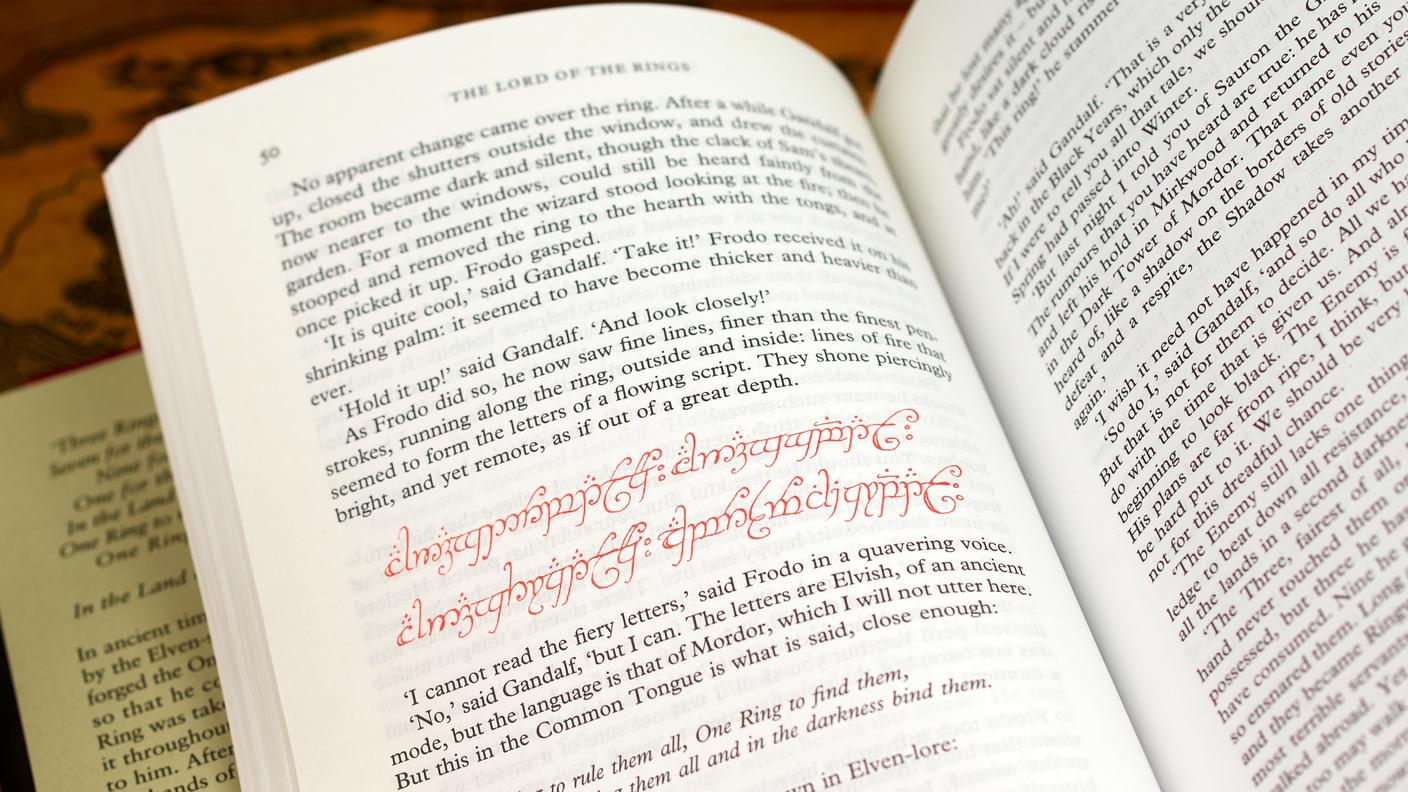 THE LORD OF THE RINGS
50
No apparent change came over the ring. After a while Gandalf got
up, closed the shutters outside the window, and drew the curtains.
The room became dark and silent, though the clack of Sam's shears,
now nearer to the windows, could still be heard faintly from the
garden. For a moment the wizard stood looking at the fire; then he
stooped and removed the ring to the hearth with the tongs, and at
once picked it up. Frodo gasped.
‘It is quite cool,’ said Gandalf. ‘Take it!’ Frodo received it on his
shrinking palm: it seemed to have become thicker and heavier than
ever.
‘Hold it up!’ said Gandalf. ‘And look closely!’
As Frodo did so, he now saw fine lines, finer than the finest pen-
strokes, running along the ring, outside and inside: lines of fire that
seemed to form the letters of a flowing script. They shone piercingly
bright, and yet remote, as if out of a great depth.
‘I cannot read the fiery letters,’ said Frodo in a quavering voice.
‘No,’ said Gandalf, ‘but I can. The letters are Elvish, of an ancient
mode, but the language is that of Mordor, which I will not utter here.
But this in the Common Tongue is what is said, close enough:
to rule them all, One Ring to find them,
them all and in the darkness bind them.
in Elven-lore:
‘Three Rings
Seven for the
Nine for
One for the
In the Land
One Ring to
One Ring
In the Land
In ancient
by the Elven-
forged the
so that he
Ring was
it throughout
to him. After
hands of
silent and
like a dark cloud
‘This ring!’ he stammered
me?’
‘Ah!’ said Gandalf. ‘That is a very
back in the Black Years, which only the
If I were to tell you all that tale, we should
Spring had passed into Winter.
‘But last night I told you of Sauron the
The rumours that you have heard are true: he has
and left his hold in Mirkwood and returned to his
in the Dark Tower of Mordor. That name even you
heard of, like a shadow on the borders of old stories
defeat and a respite, the Shadow takes another
again.’
‘I wish it need not have happened in my
‘So do I,’ said Gandalf, ‘and so do all who
But that is not for them to decide. All we
do with the time that is given us. And
beginning to look black. The Enemy is
His plans are far from ripe, I think, but
be hard put to it. We should be very
not for this dreadful chance.
‘The Enemy still lacks one thing
ledge to beat down all resistance,
all the lands in a second darkness
‘The Three, fairest of all,
hand never touched them
possessed, but three he
have consumed. Nine he
so ensnared them. Long
and they became
most terrible
walked abroad. Yet
too many